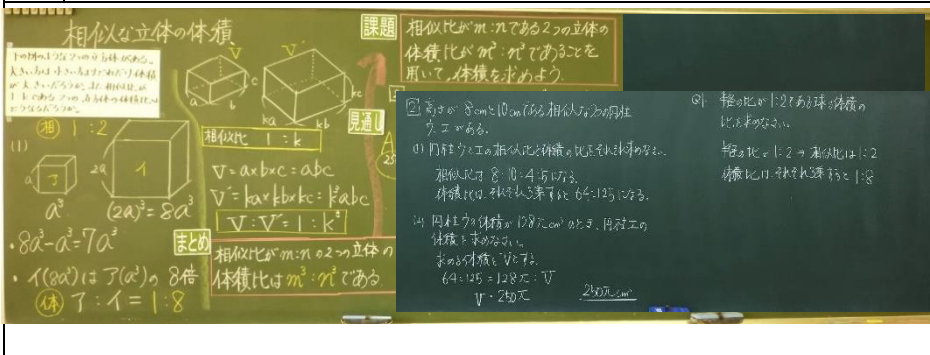 相似な立体の体積
下の図のような2つの立方体がある。
相 1:2
(1)
a
ア
2a
イ
a³
(2a)³=8a³
・8a³-a³=7a³
・イ(8a³)はア(a³)の8倍
体 ア:イ=1:8
V
V'
a
b
c
ka
kb
kc
相似比 1:k
V=a×b×c=abc
V'=ka×kb×kc=k³abc
V:V'=1:k³
まとめ
相似比がm:nの2つの立体の
体積比はm³:n³である
課題
相似比がm:nである2つの立体の
体積比がm³:n³であることを
用いて、体積を求めよう。
見通し
高さが8cmと10cmである相似な2つの円柱
ウ、エがある。
(1) 円柱ウとエの相似比と体積の比をそれぞれ求めなさい。
相似比は 8:10=4:5になる。
体積比は、それぞれ3乗すると 64:125になる。
(2) 円柱ウの体積が128πcm³のとき、円柱エの
体積を求めなさい。
求める体積をVとする。
64:125=128π:V
V=250π
250πcm³
Q1 半径の比が1:2である球の体積の
比を求めなさい。
半径の比=1:2→相似比は1:2
体積比は、それぞれ3乗すると 1:8